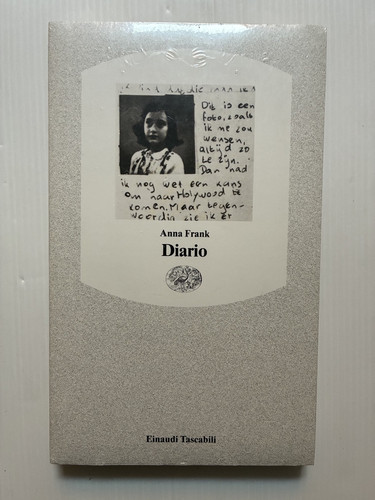 Dit is een
foto, zoals
ik me zou
wensen,
altijd zo
te zijn.
Dan had
ik nog wel een kans
om naar Holywood te
komen. Maar tegen-
woordig zie ik er
Anna Frank
Diario
Einaudi Tascabili